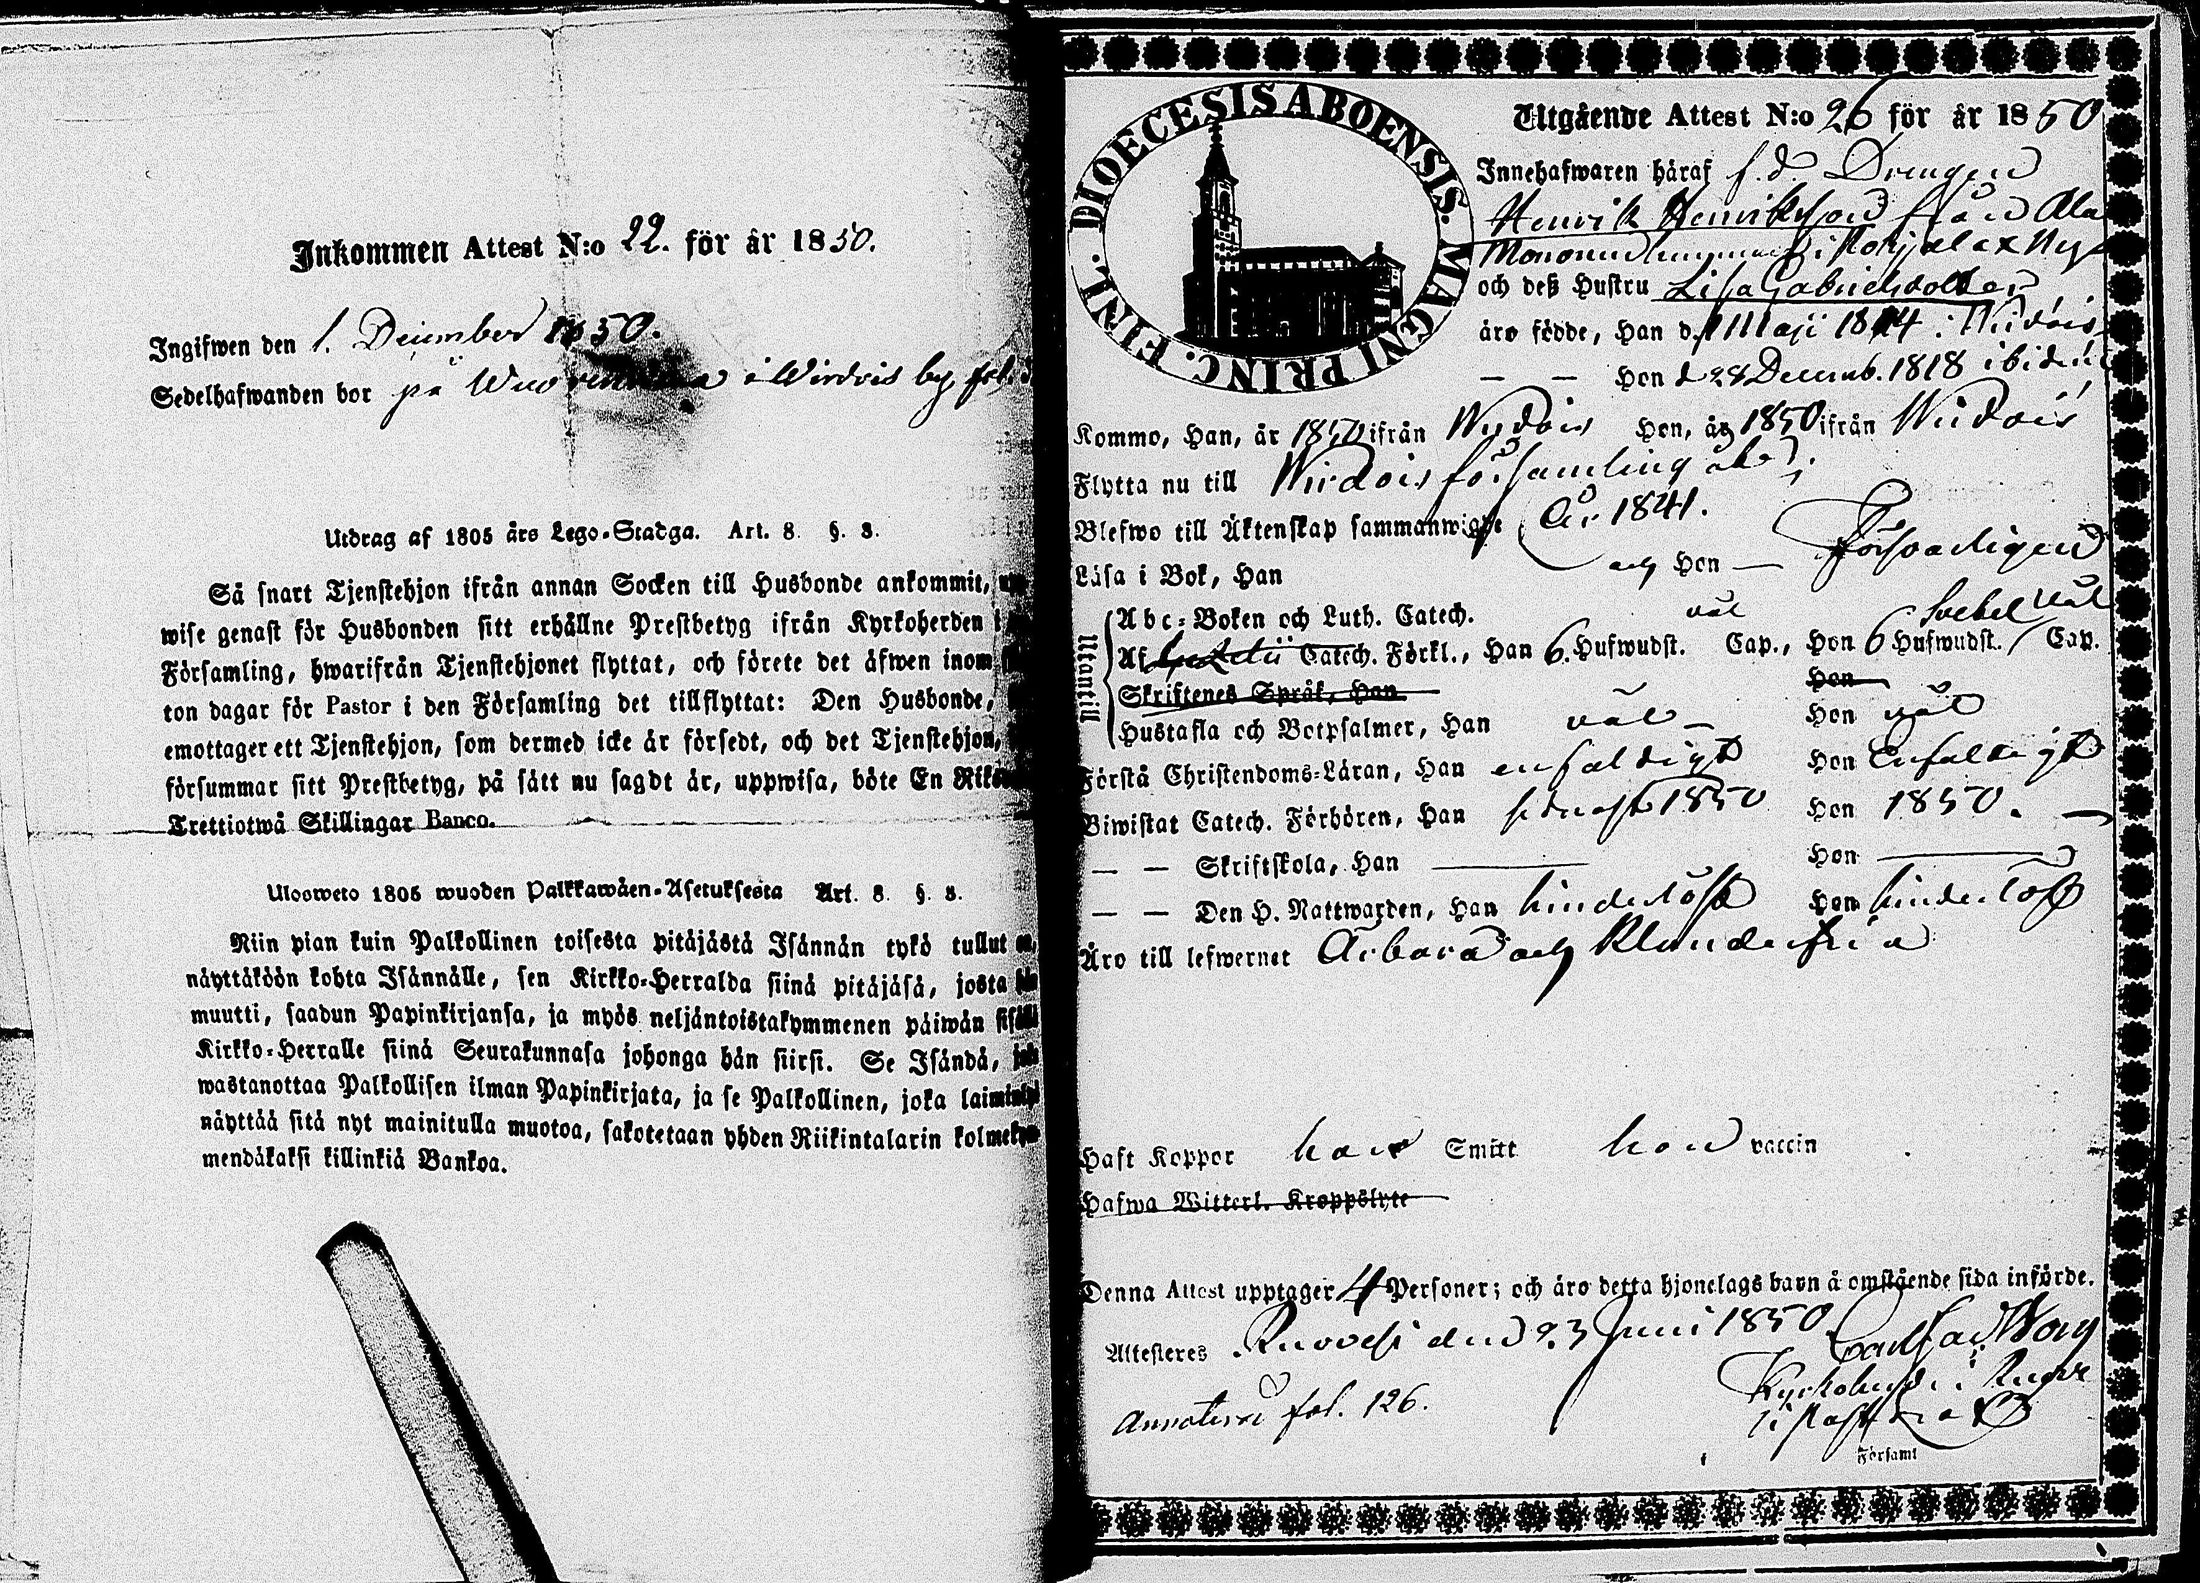 Inkommen Attest N:o 22. för år 1850.
Ingifwen den 1. December 1850.
Sedelhafwanden bor på i Wirdois by fol.
Utdrag af 1805 års Lego-Stadga. Art. 8. §. 8.
Så snart Tjenstehjon ifrån annan Socken till Husbonde ankommit,
wise genast för Husbonden sitt erhållne Prestbetyg ifrån Kyrkoherden i
Församling, hwarifrån Tjenstehjonet flyttat, och förete det äfwen inom
ton dagar för Pastor i den Församling det tillflyttat: Den Husbonde,
emottager ett Tjenstehjon, som dermed icke är försedt, och det Tjenstehjon,
försummar sitt Prestbetyg, på sätt nu sagdt är, uppwisa, böte En Riks
Trettiotwå Skillingar Banco.
Uloosweto 1805 wuoden Palkkawäen-Asetuksesta Art. 8. §. 8.
Niin pian kuin Palkollinen toisesta pitäjästä Isännän tykö tullut on,
näyttäköön kohta Isännälle, sen Kirkko-Herralda siinä pitäjäsä, josta hän
muutti, saadun Papinkirjansa, ja myös neljäntoistakymmenen päiwän sisällä
Kirkko-Herralle siinä Seurakunnasa johonga hän siirsi. Se Isändä, joka
wastanottaa Palkollisen ilman Papinkirjata, ja se Palkollinen, joka laiminlyö
näyttää sitä nyt mainitulla muotoa, sakotetaan yhden Riikintalarin kolmekym
mendäkaksi killinkiä Bankoa.
FINL. DIOECESIS ABOENSIS. MAGNI PRINC.
Utgående Attest N:o 26 för år 1850
Innehafwaren häraf f.d. Drengen
Henrik Henriksson från Ala
i Pohjalax
och deß Hustru Lisa Gabrielsdotter
äro födde, Han d. 1 Maji 1814 i Wirdois
— — Hon d 28 Decemb. 1818 ibidem
Kommo, Han, år 1850 ifrån Wirdois Hon, år 1850 ifrån Wirdois
Flytta nu till Wirdois församling åter
Blefwo till Äktenskap sammanwigde År 1841.
Läsa i Bok, Han och Hon — Försvarligen
Utantill
Abc-Boken och Luth. Catech. väl Svebel väl
Af Catech. Förkl., Han 6. Hufwudst. Cap., Hon 6 Hufwudst. Cap.
Skriftenes Språk, Han Hon
Hustafla och Botpsalmer, Han väl Hon väl
Förstå Christendoms-Läran, Han enfaldigt Hon Enfaldigt
Biwistat Catech. Förhören, Han senast 1850 Hon 1850.
— — Skriftskola, Han — Hon —
— — Den H. Nattwarden, Han hinderlöst Hon hinderlöst
Äro till lefwernet Ärbara och Klanderfria
Haft Koppor han Smitt hon vaccin
Hafwa Witterl. Kroppslyte
Denna Attest upptager 4 Personer; och äro detta hjonelags barn å omstående sida införde.
Attesteres Ruovesi den 23 Juni 1850
Kyrkoherde i
Annoterad fol. 126.
Församl